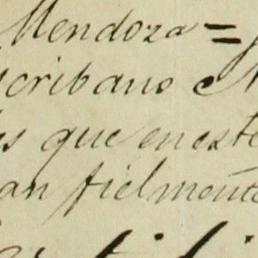 Mendoza =
scribano N
s que en este
an fielmente